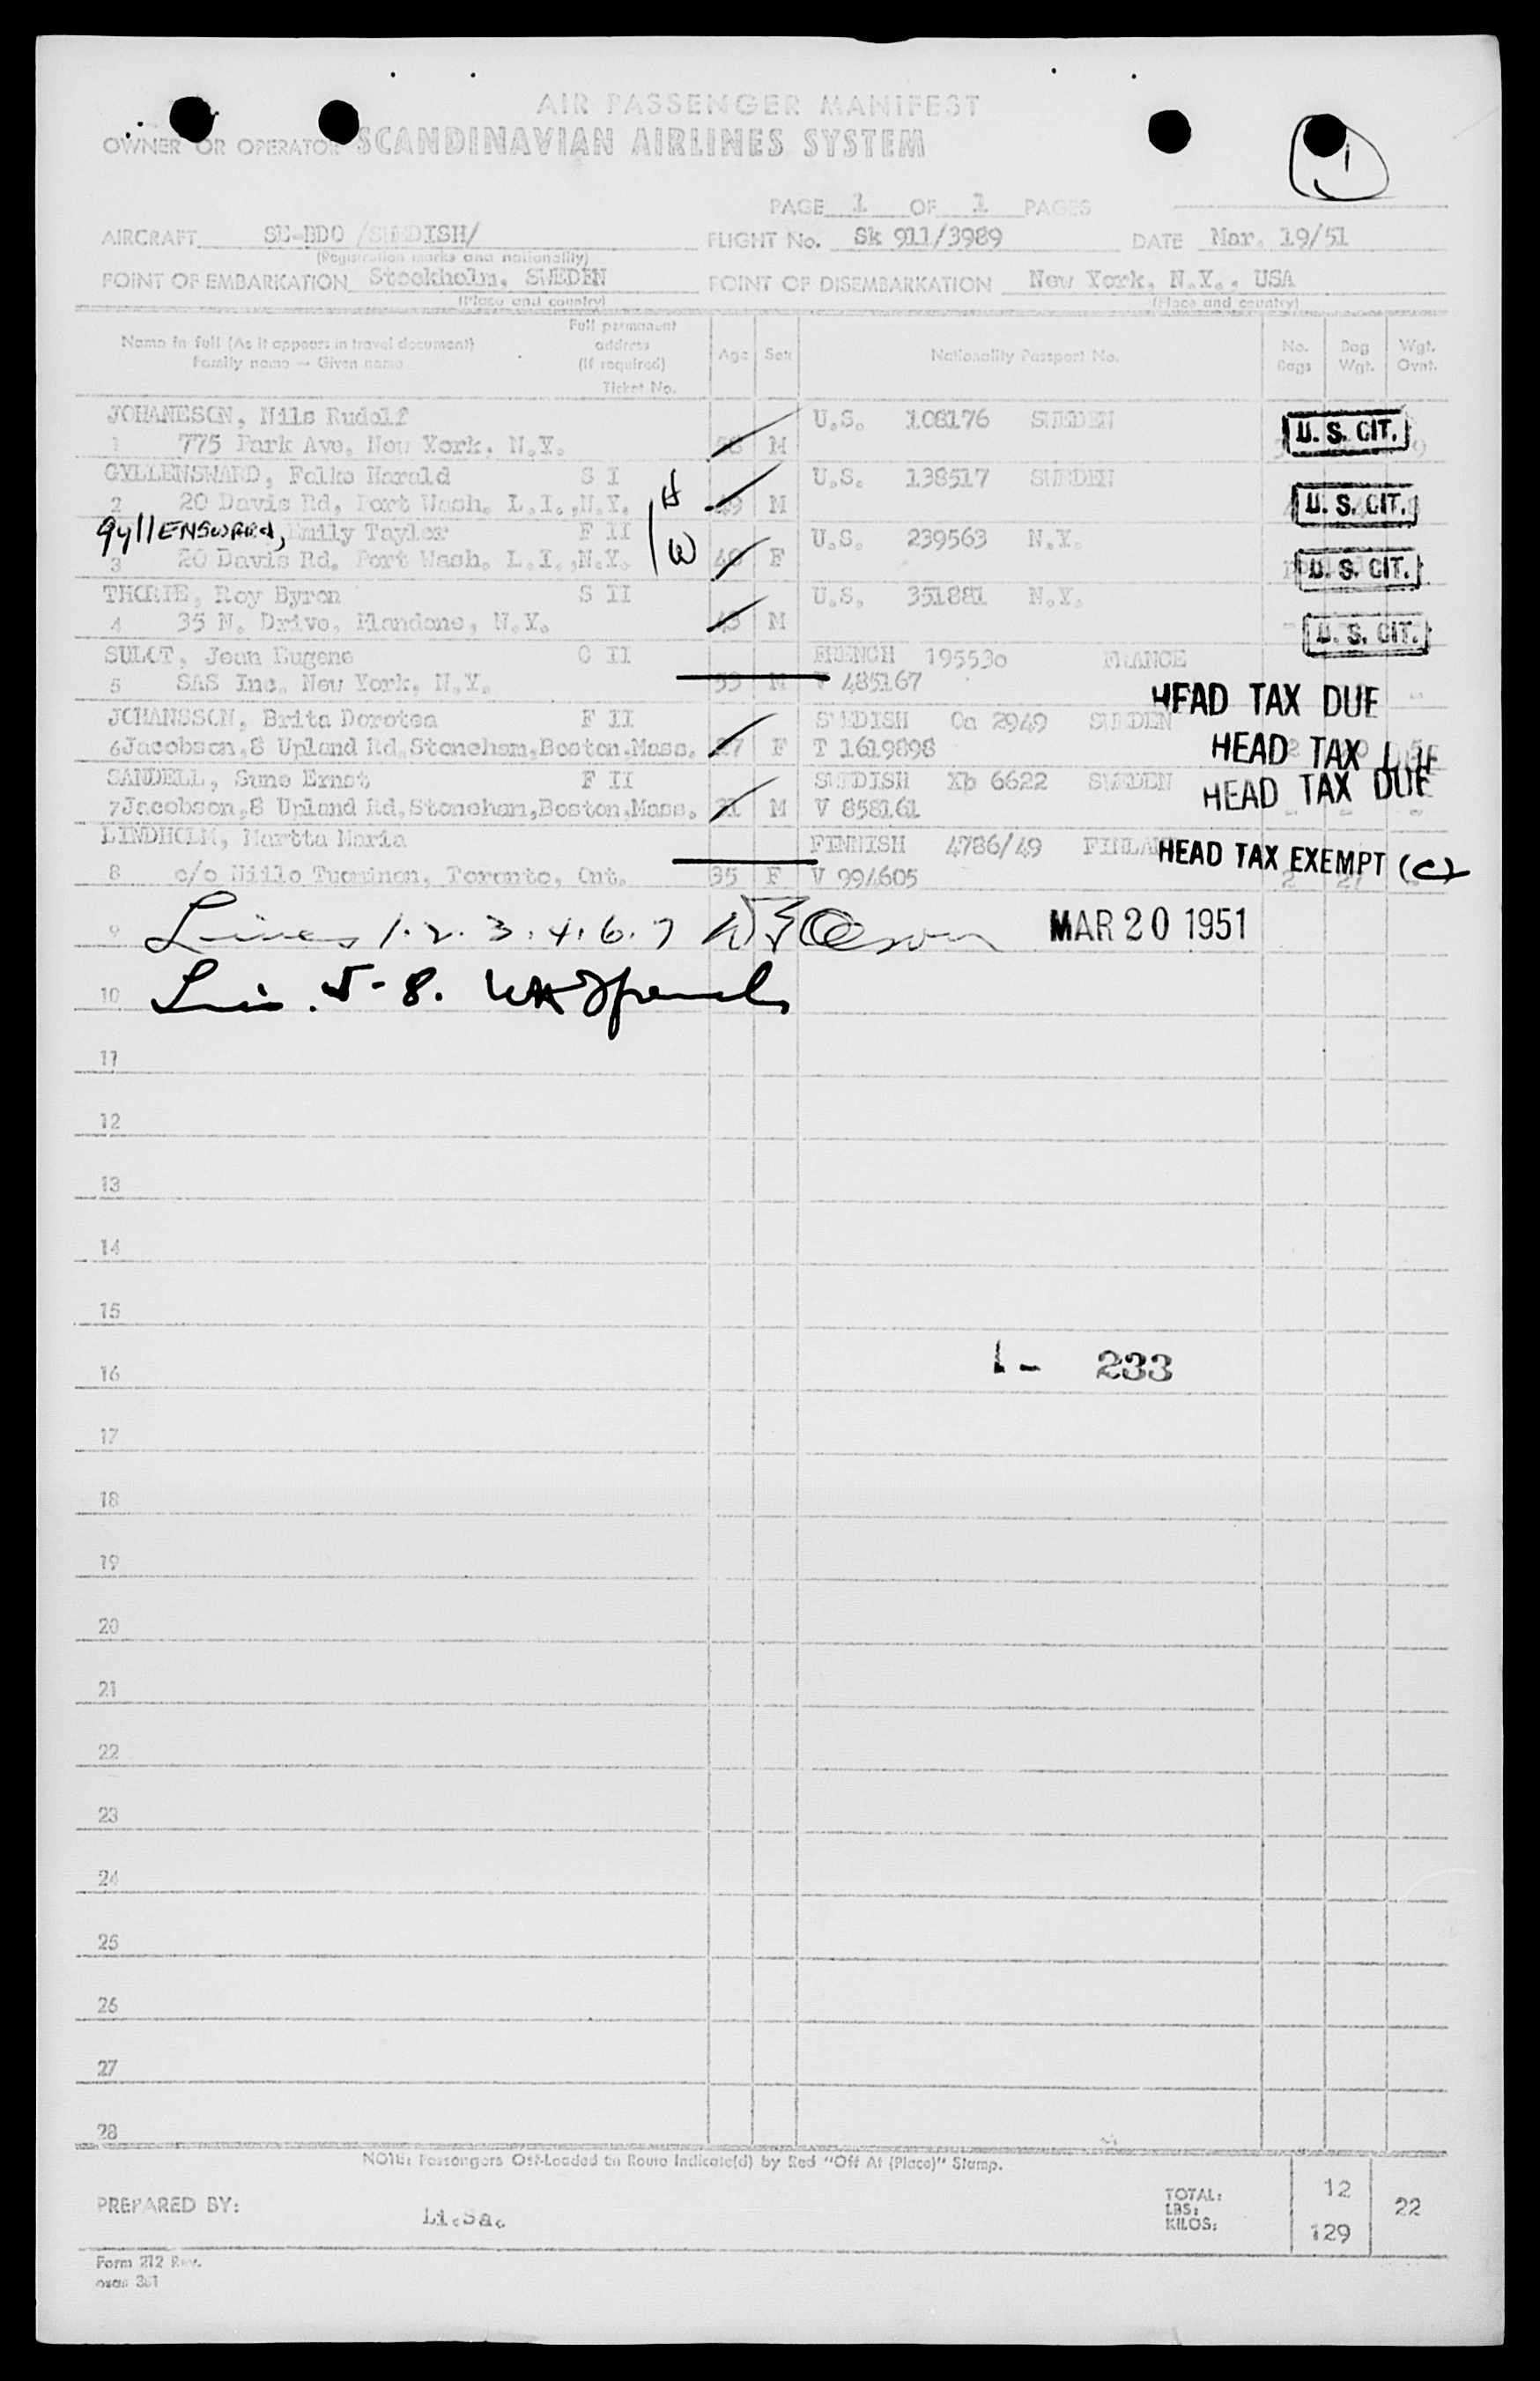 AIR PASSENGER MANIFEST
OWNER OR OPERATOR SCANDINAVIAN AIRLINES SYSTEM
1
PAGE 1 OF 1 PAGES
AIRCRAFT SE-BDO /SWEDISH/ FLIGHT No. Sk 911/3989 DATE Mar. 19/51
(Registration marks and nationality)
POINT OF EMBARKATION Stockholm, SWEDEN POINT OF DISEMBARKATION New York, N.Y., USA
(Place and country) (Place and country)
Name in full (As it appears in travel document) Family name — Given name Full permanent address (If required) Ticket No. Age Sex Nationality Passport No. No. Bags Bag Wgt. Wgt. Ovnt.
JOHANESON, Nils Rudolf U.S. 108176 SWEDEN
1 775 Park Ave, New York, N.Y. M U. S. CIT.
GYLLENSWARD, Folke Harald S I H U.S. 138517 SWEDEN
2 20 Davis Rd, Port Wash. L.I.,N.Y. 49 M U. S. CIT.
GyllENSWARD, Emily Taylor F II W U.S. 239563 N.Y.
3 20 Davis Rd. Port Wash. L.I.,N.Y. F U. S. CIT.
THORIE, Roy Byron S II U.S. 351881 N.Y.
4 35 N. Drive, Plandone, N.Y. M U. S. CIT.
SULOT, Jean Eugene C II FRENCH 195530 FRANCE
5 SAS Inc. New York, N.Y. M V 485167 HEAD TAX DUE
JOHANSSON, Brita Dorotea F II SWEDISH Oa 2949 SWEDEN
6 Jacobson,8 Upland Rd,Stoneham,Boston,Mass. 27 F T 1619898 HEAD TAX DUE
SANDELL, Sune Ernst F II SWEDISH Xb 6622 SWEDEN HEAD TAX DUE
7 Jacobson,8 Upland Rd,Stoneham,Boston,Mass. 31 M V 858161
LINDHOLM, Martta Maria FINNISH 4786/49 FINLAND HEAD TAX EXEMPT (C)
8 c/o Niilo Tuominen, Toronto, Ont. 35 F V 994605 2 21
9 Lines 1.2.3.4.6.7 MAR 20 1951
10 5-8.
11
12
13
14
15
16 1- 233
17
18
19
20
21
22
23
24
25
26
27
28
NOTE: Passengers Off-Loaded En Route Indicate(d) by Red "Off At (Place)" Stamp.
PREPARED BY: Li.Sa. TOTAL: 12
LBS: 22
KILOS: 129
Form 212 Rev.